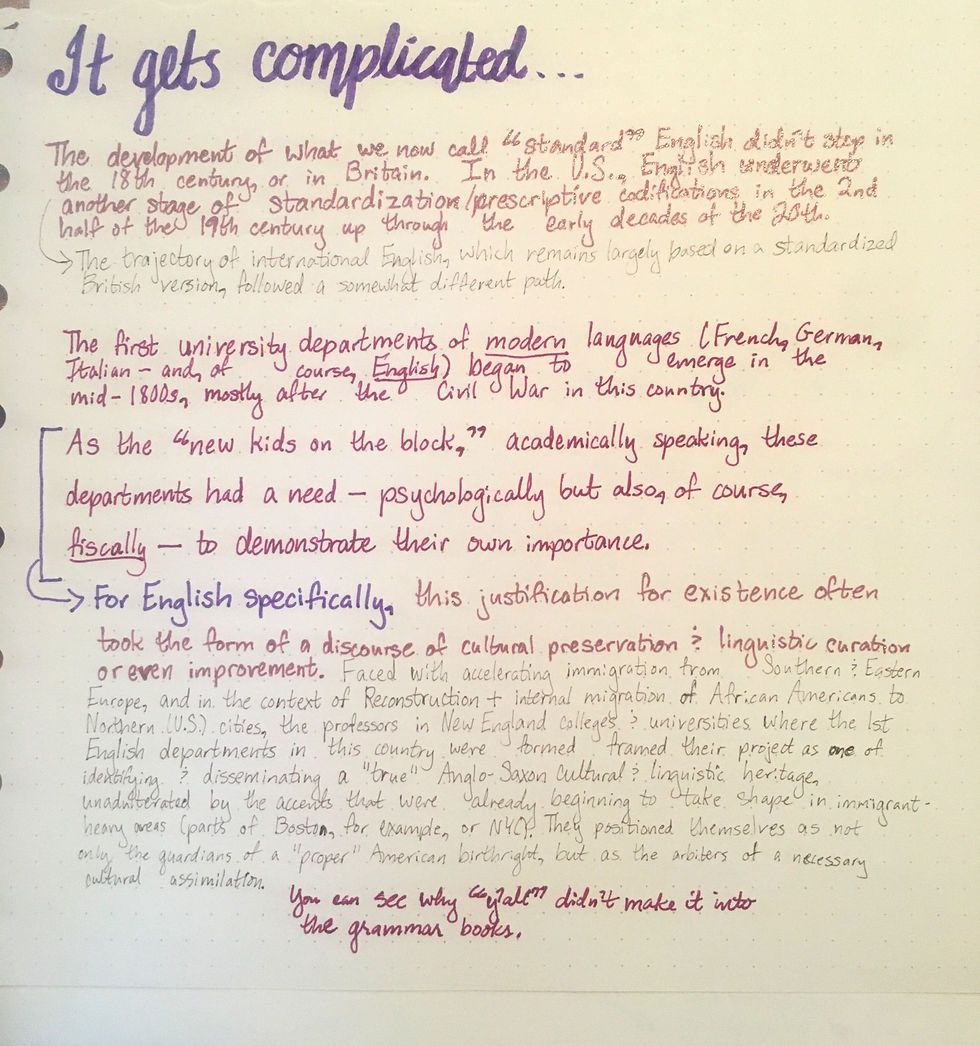 It gets complicated...
The development of what we now call "standard" English didn't stop in
the 18th century, or in Britain. In the U.S., English underwent
another stage of standardization/prescriptive codifications in the 2nd
half of the 19th century up through the early decades of the 20th.
The trajectory of international English, which remains largely based on a standardized
British version, followed a somewhat different path.
The first university departments of modern languages (French, German,
Italian - and, of course, English) began to emerge in the
mid-1800s, mostly after the Civil War in this country.
As the "new kids on the block," academically speaking, these
departments had a need - psychologically but also, of course,
fiscally - to demonstrate their own importance.
For English specifically, this justification for existence often
took the form of a discourse of cultural preservation & linguistic curation
or even improvement. Faced with accelerating immigration from Southern & Eastern
Europe, and in the context of Reconstruction + internal migration of African Americans to
Northern (U.S.) cities, the professors in New England colleges & universities where the 1st
English departments in this country were formed framed their project as one of
identifying & disseminating a "true" Anglo-Saxon cultural & linguistic heritage,
unadulterated by the accents that were already beginning to take shape in immigrant-
heavy areas (parts of Boston, for example, or NYC). They positioned themselves as not
only the guardians of a "proper" American birthright, but as the arbiters of a necessary
cultural assimilation.
You can see why "y'all" didn't make it into
the grammar books.